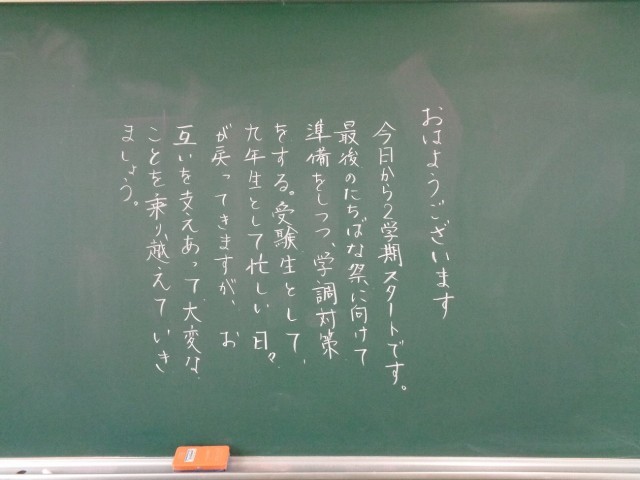 おはようございます
今日から2学期スタートです。
最後のたちばな祭に向けて
準備をしつつ、学調対策
をする。受験生として、
九年生として忙しい日々
が戻ってきますが、お
互いを支えあって大変な
ことを乗り越えていき
ましょう。